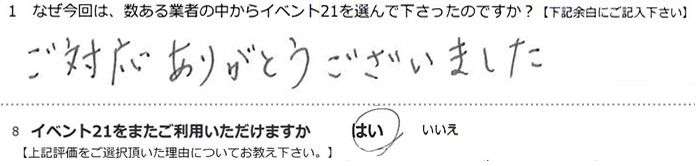 1 なぜ今回は、数ある業者の中からイベント21を選んで下さったのですか？【下記余白にご記入下さい】
ご対応ありがとうございました
8 イベント21をまたご利用いただけますか はい いいえ
【上記評価をご選択頂いた理由についてお教え下さい。】